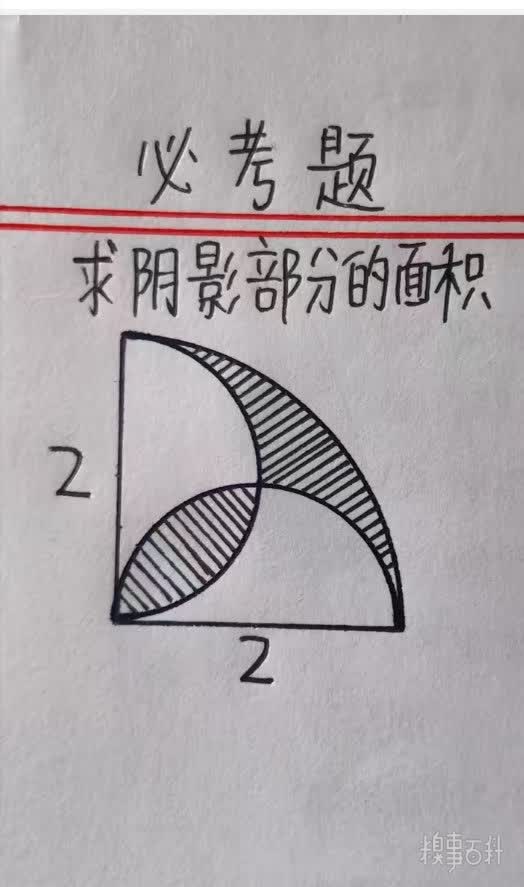 必考题
求阴影部分的面积
2
2
糗事百科